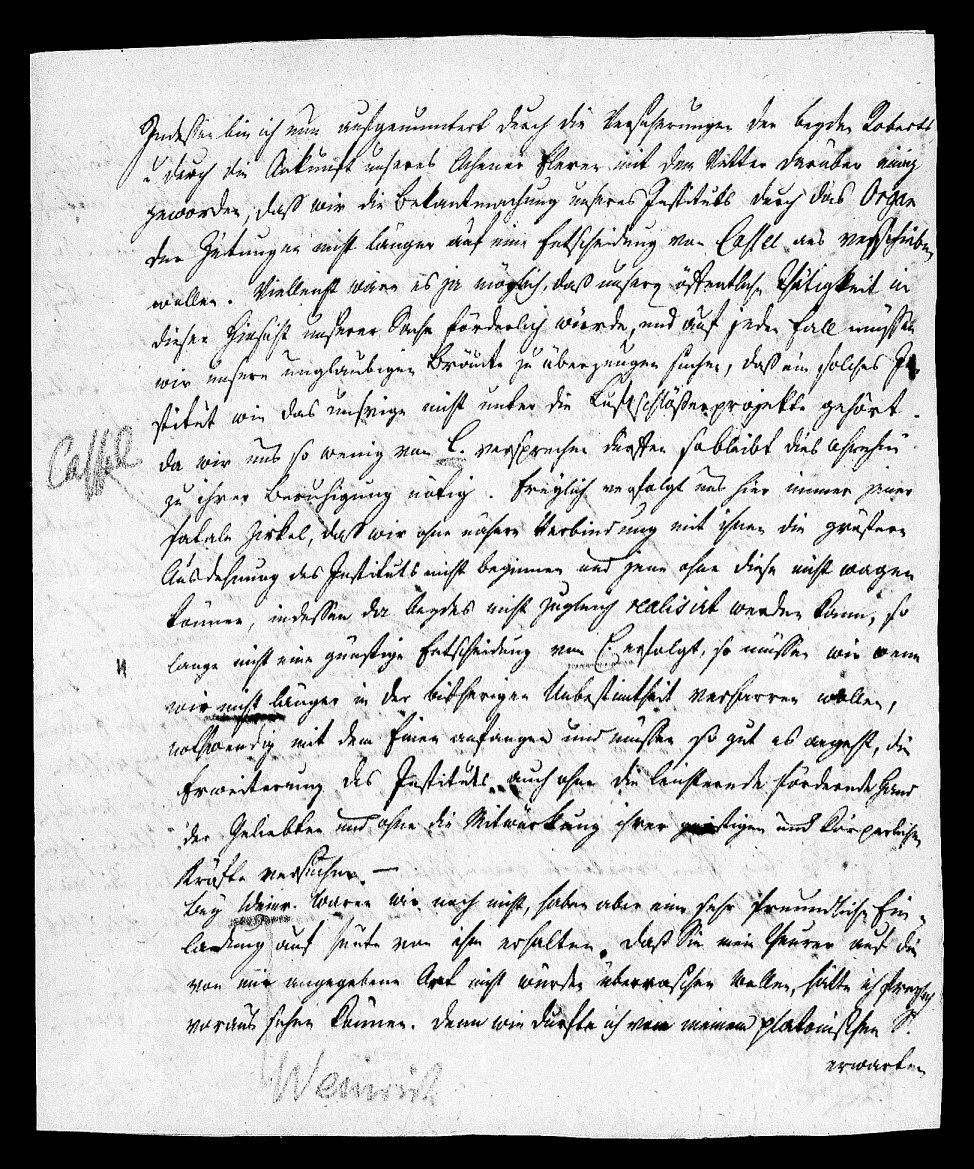 Indessen bin ich nun aufgemuntert durch die Versicherungen der beyden Roberts
u durch die Ankunft unseres Eleven mit dem Vatter darüber einig
geworden, daß wir die Bekantmachung unseres Instituts durch das Organ
der Zeitungen nicht länger auf eine Entscheidung von Cassel aus verschieben
wollen. Vielleicht wäre es ja möglich, daß unsere öffentliche Thätigkeit in
dieser Hinsicht unserer Sache förderlich würde, und auf jeden Fall müssen
wir unsere unglaubigen Bräute zu überzeugen suchen, daß ein solches In-
stitut wie das unsrige nicht unter die Luftschlößerprojekte gehört.
Cassel
Da wir uns so wenig von C. versprechen durften so bleibt dies ohnehin
zu ihrer Beruhigung nötig. Freylich verfolgt uns hier immer jener
fatale Zirkel, daß wir ohne nähere Verbindung mit ihnen die größere
Ausdehnung des Instituts nicht beginnen und jene ohne diese nicht wagen
können, indessen da beydes nicht zugleich realisirt werden kann, so
lange nicht eine günstige Entscheidung von C. erfolgt, so müssen wir wenn
wir nicht länger in der bisherigen Unbestimtheit verharren wollen,
nothwendig mit dem Einen anfangen und müssen so gut es angeht, die
Erweiterung des Instituts auch ohne die leistende fördernde Hand
der Geliebten und ohne die Mitwürkung ihrer geistigen und körperlichen
Kräfte versuchen. —
Bey Weinr. waren wir noch nicht, haben aber eine sehr freundliche Ein-
ladung auf heute von ihm erhalten. Daß Sie mein Theurer auf die
von mir angegebene Art nicht würden überraschen wollen, hätte ich freylich
voraus sehen können. Denn wie durfte ich von meinem platonischen S.
erwarten
Weinrich